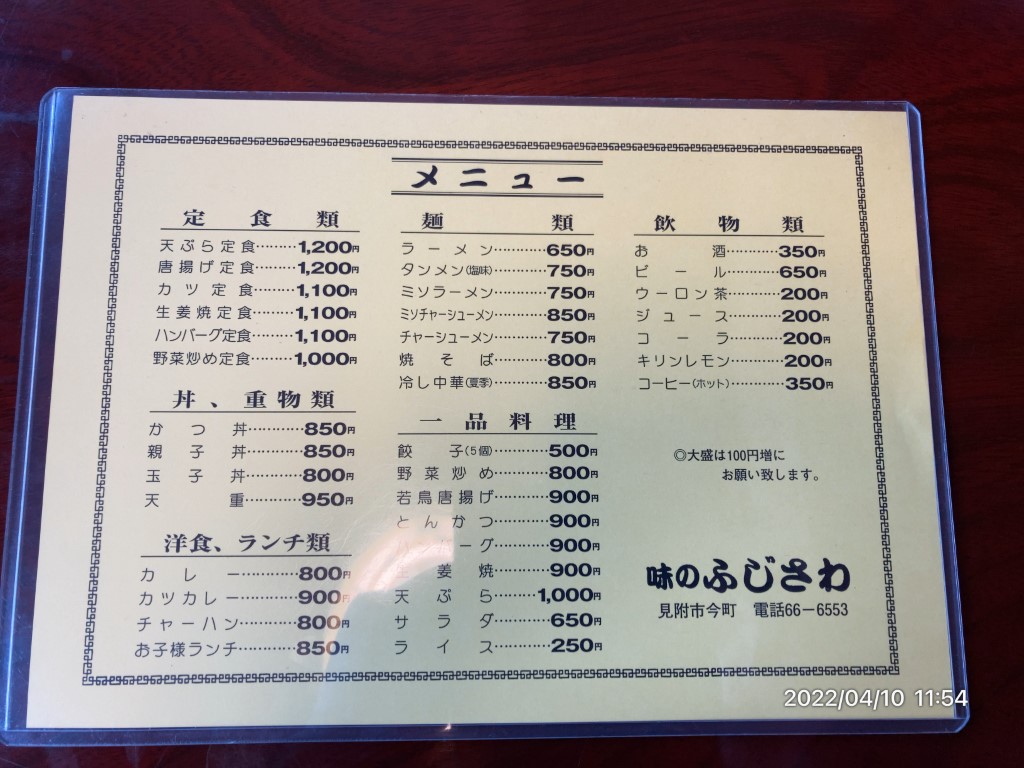 メニュー
定食類
天ぷら定食………1,200円
唐揚げ定食………1,200円
カツ定食………1,100円
生姜焼定食………1,100円
ハンバーグ定食………1,100円
野菜炒め定食………1,000円
丼、重物類
かつ丼…………850円
親子丼…………850円
玉子丼…………800円
天重…………950円
洋食、ランチ類
カレー…………800円
カツカレー…………900円
チャーハン…………800円
お子様ランチ…………850円
麺類
ラーメン…………650円
タンメン(塩味)…………750円
ミソラーメン…………750円
ミソチャーシューメン…………850円
チャーシューメン…………750円
焼そば…………800円
冷し中華(夏季)…………850円
一品料理
餃子(5個)…………500円
野菜炒め…………800円
若鳥唐揚げ…………900円
とんかつ…………900円
ハンバーグ…………900円
生姜焼…………900円
天ぷら…………1,000円
サラダ…………650円
ライス…………250円
飲物類
お酒…………350円
ビール…………650円
ウーロン茶…………200円
ジュース…………200円
コーラ…………200円
キリンレモン…………200円
コーヒー(ホット)…………350円
◎大盛は100円増に
お願い致します。
味のふじさわ
見附市今町 電話66-6553
2022/04/10 11:54